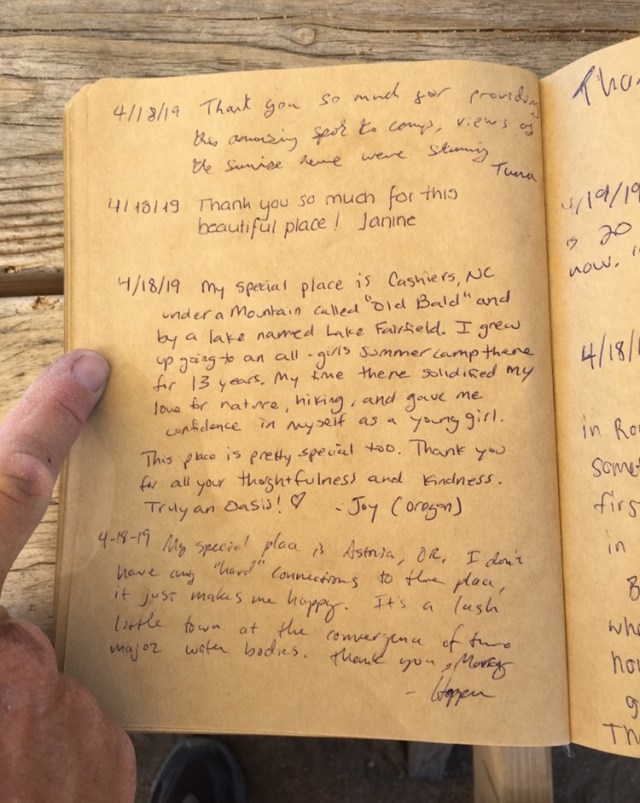 4/18/19 Thank you so much for providing
this amazing spot to camp, views of
the sunrise here were stunning
Tuna
4/18/19 Thank you so much for this
beautiful place! Janine
4/18/19 My special place is Cashiers, NC
under a Mountain called "Old Bald" and
by a lake named Lake Fairfield. I grew
up going to an all-girls summer camp there
for 13 years. My time there solidified my
love for nature, hiking, and gave me
confidence in myself as a young girl.
This place is pretty special too. Thank you
for all your thoghtfulness and kindness.
Truly an Oasis! ♡ - Joy (Oregon)
4-18-19 My special place is Astoria, OR, I don't
have any "hard" connections to the place,
it just makes me happy. It's a lush
little town at the convergence of two
major water bodies. Thank you,
Tha
4/19/19
is 20
now.
4/18/1
in
some
firs
in
B
whe